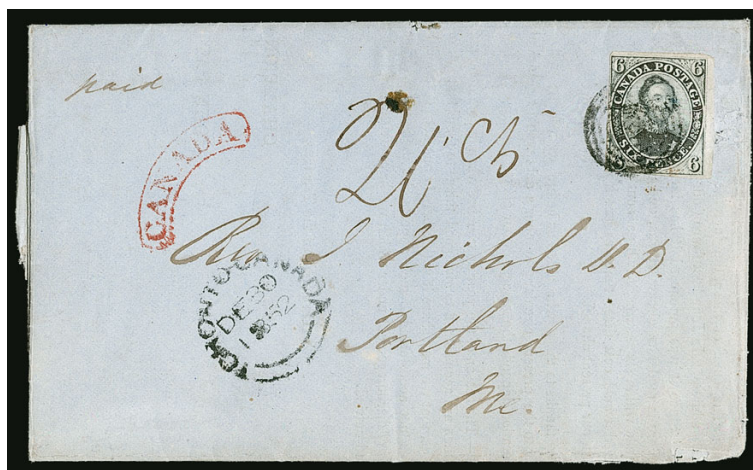 paid
6 6
CANADA POSTAGE
SIX PENCE
6
CANADA
Rev J. Nichols D.D.
TORONTO CANADA
DE 30
1852
Portland
Me.